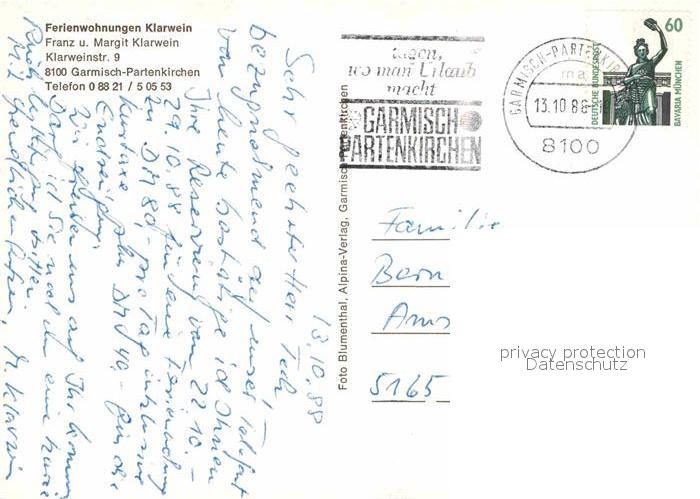 Ferienwohnungen Klarwein
Franz u. Margit Klarwein
Klarweinstr. 9
8100 Garmisch-Partenkirchen
Telefon 0 88 21 / 5 05 53
13.10.88
Sehr geehrter Herr
bezugnehmend auf unser Telefonat
von heute bestätige ich Ihnen
Ihre Reservierung vom 22.10.-
29.10.88 für eine Ferienwohnung
zu DM 80,- pro Tag inklusive
Kurtaxe plus DM 40,- für die
Endreinigung.
Wir freuen uns auf Ihr Kommen
Darf ich Sie noch um eine kurze
Rück bitten.
M. freundlichen Grüßen, M. Klarwein
Foto Blumenthal, Alpina-Verlag, Garmisch-Partenkirchen
wo man Urlaub
macht
GARMISCH
PARTENKIRCHEN
GARMISCH-PARTENKIR
ma
13.10.88
8100
60
DEUTSCHE BUNDESPOST
BAVARIA MÜNCHEN
Familie
Bern
Am
5165
privacy protection
Datenschutz